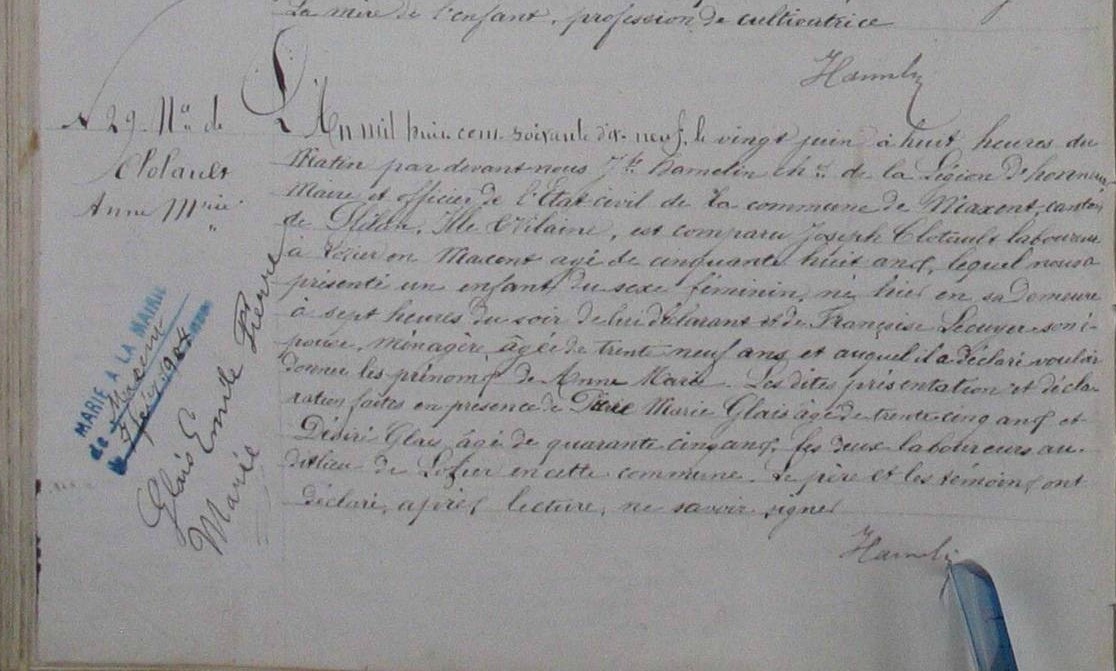 La mère de l'enfant, profession de cultivatrice
Hamelin
N 29. N.ce de
Clolault
Anne M.rie
L'An mil huit cent soixante dix-neuf, le vingt juin à huit heures du
Matin par devant nous J.h Hamelin Ch.er de la Légion d'honneur
Maire et officier de l'Etat-civil de la commune de Maxent, canton
de Plélan, Ille & Vilaine, est comparu Joseph Clotault laboureur
à en Maxent agé de cinquante huit ans, lequel nous a
présenté un enfant du sexe féminin, né hier en sa demeure
à sept heures du soir de lui déclarant et de Françoise Leouyer son é-
pouse, Ménagère, âgée de trente neuf ans, et auquel il a déclaré vouloir
donner les prénoms de Anne Marie. Les dites présentation et décla
ration faites en présence de Pierre Marie Glais âgé de trente cinq ans et
Désiré Glais, âgé de quarante cinq ans, les deux laboureurs au
dit lieu de en cette commune. Le père et les témoins ont
déclaré, après lecture, ne savoir signer
Hamelin
MARIÉ A LA MAIRIE
de Maxent
le
Glais Emile Pierre
Marie